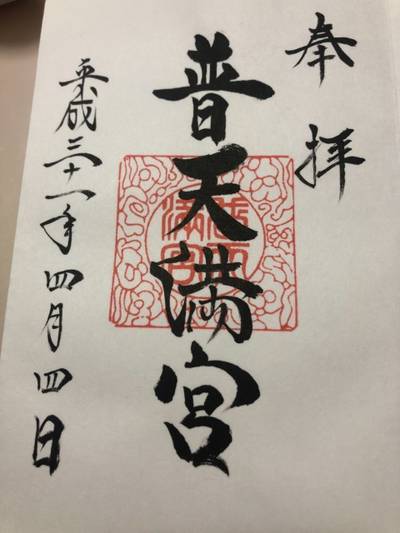 奉拝
普天満宮
平成三十一年四月四日